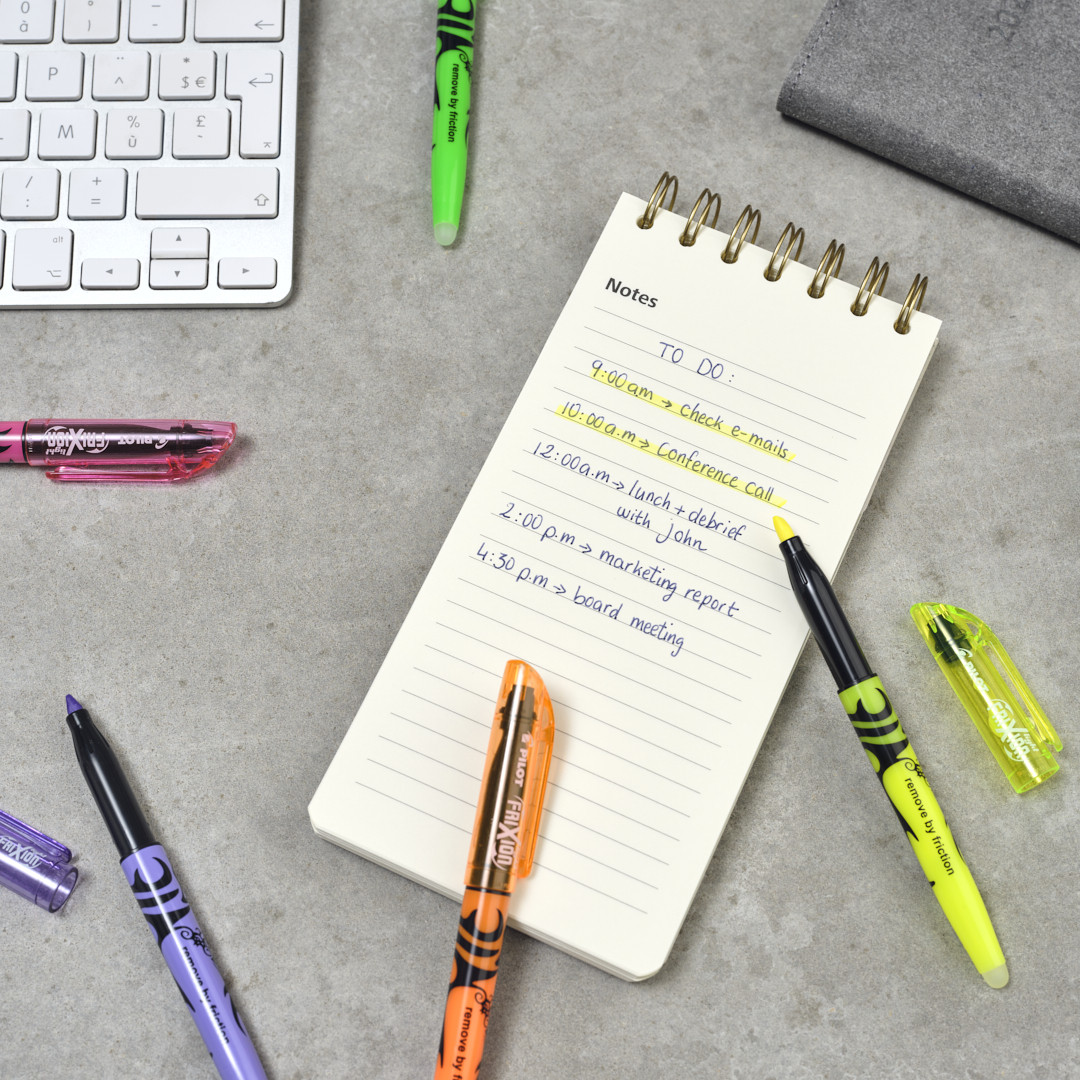 0
à
)
°
-
_
P
¨
^
*
$ €
M
%
ù
£
`
/
:
+
=
alt
remove by friction
Notes
TO DO:
9:00am → check e-mails
10:00a.m → Conference call
12:00a.m → lunch + debrief
with john
2:00 p.m → marketing report
4:30 p.m → board meeting
PILOT
FRIXION
light
PILOT
FRIXION
light
remove by friction
FRIXION
remove by friction
PILOT
FRIXION
remove by f